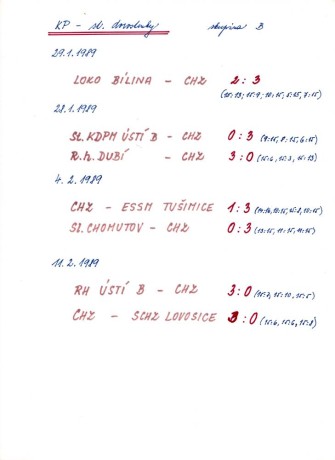 KP - st. dorostenky skupina B
29.1.1989
LOKO BÍLINA - CHZ 2:3
(20:13; 15:9; 10:15; 5:15, 7:15)
28.1.1989
SL. KDPM ÚSTÍ B - CHZ 0:3 (9:15, 8:15, 6:15)
R.h. DUBÍ - CHZ 3:0 (15:6, 15:3, 15:13)
4.2.1989
CHZ - ESSM TUŠIMICE 1:3
SL. CHOMUTOV - CHZ 0:3 (13:15, 11:15, 11:15)
11.2.1989
RH ÚSTÍ B - CHZ 3:0 (15:7, 15:10, 15:5)
CHZ - SCHZ LOVOSICE 3:0 (15:6, 15:6, 15:8)